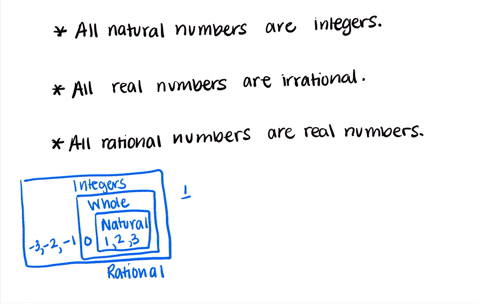 * All natural numbers are integers.
* All real numbers are irrational.
* All rational numbers are real numbers.
Integers
Whole
Natural
-3,-2,-1 0 1,2,3
Rational
1